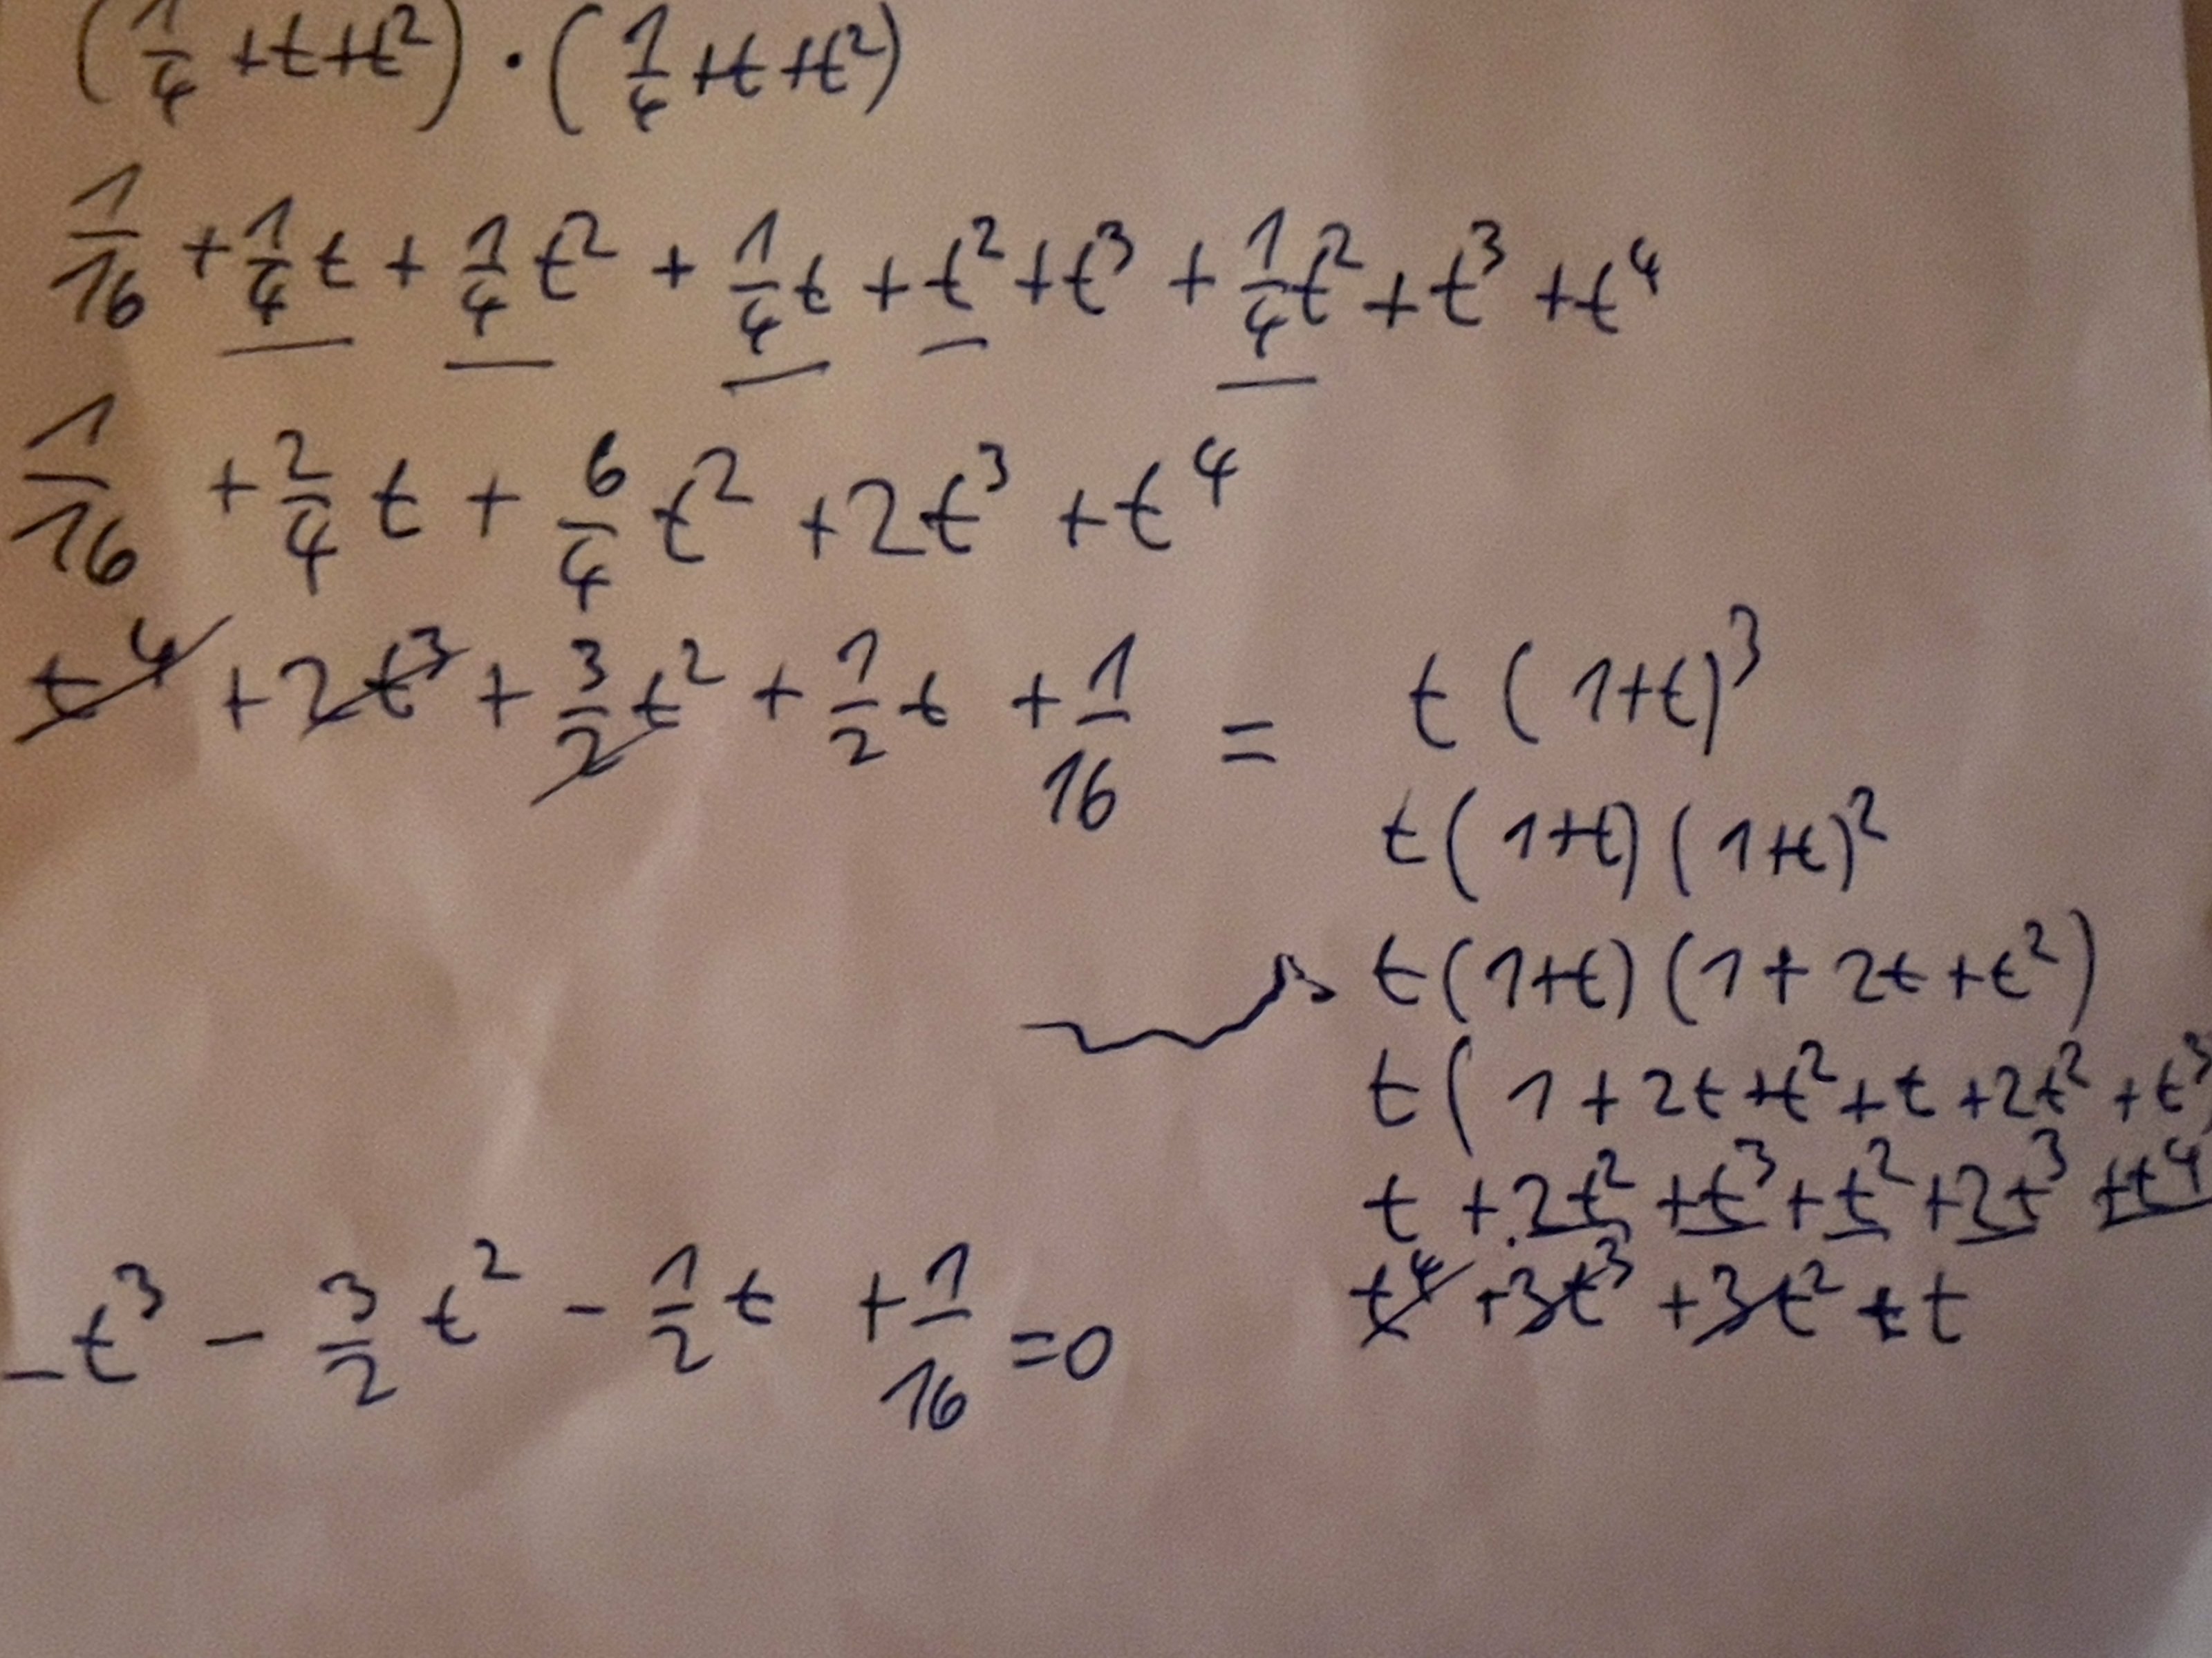 (1/4 + t + t²) · (1/4 + t + t²)
1/16 + 1/4 t + 1/4 t² + 1/4 t + t² + t³ + 1/4 t² + t³ + t⁴
1/16 + 2/4 t + 6/4 t² + 2t³ + t⁴
t⁴ + 2t³ + 3/2 t² + 1/2 t + 1/16 = t (1+t)³
t (1+t) (1+t)²
t (1+t) (1 + 2t + t²)
t ( 1 + 2t + t² + t + 2t² + t³)
t + 2t² + t³ + t² + 2t³ + t⁴
t⁴ + 3t³ + 3t² + t
-t³ - 3/2 t² - 1/2 t + 1/16 = 0